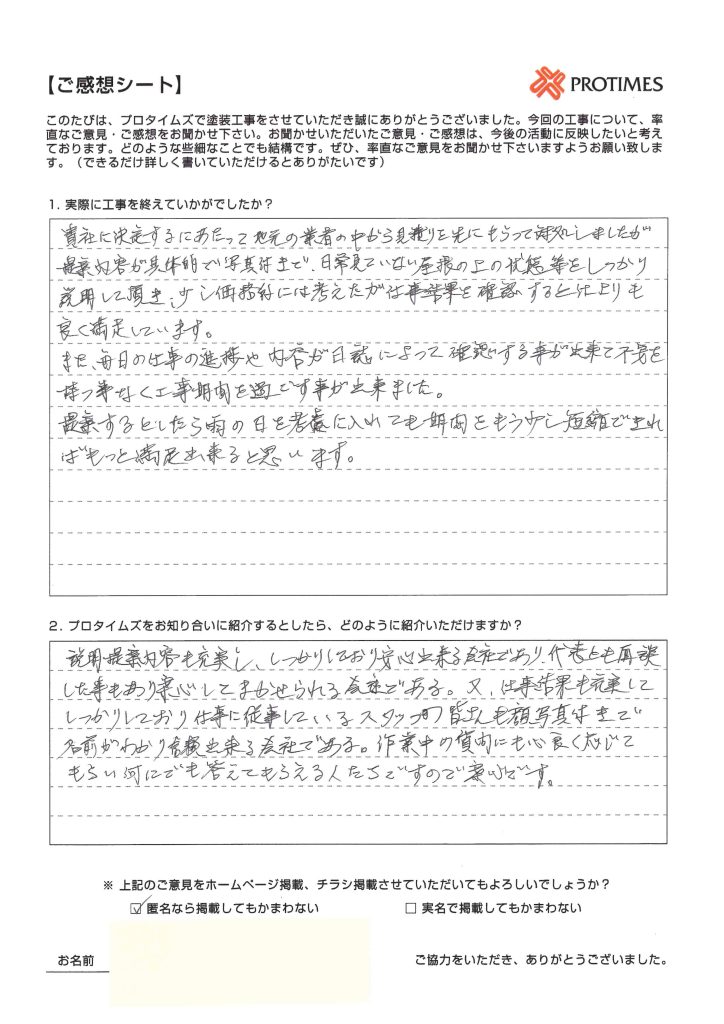 【ご感想シート】
PROTIMES
このたびは、プロタイムズで塗装工事をさせていただき誠にありがとうございました。今回の工事について、率
直なご意見・ご感想をお聞かせ下さい。お聞かせいただいたご意見・ご感想は、今後の活動に反映したいと考え
ております。どのような些細なことでも結構です。ぜひ、率直なご意見をお聞かせ下さいますようお願い致しま
す。（できるだけ詳しく書いていただけるとありがたいです）
1. 実際に工事を終えていかがでしたか？
貴社に決定するにあたって地元の業者の中から見積りを先にもらって対処しましたが
提案内容が具体的で写真付まで、日常見ていない屋根の上の状態等をしっかり
説明して頂き、少し価格的には考えたが仕事結果を確認すると仕上りも
良く満足しています。
また、毎日の仕事の進捗や内容が日誌によって確認する事が出来て不安を
持つ事なく工事期間を過ごす事が出来ました。
提案するとしたら雨の日を考慮に入れても期間をもう少し短縮できれ
ばもっと満足出来ると思います。
2. プロタイムズをお知り合いに紹介するとしたら、どのように紹介いただけますか？
説明提案内容も充実し、しっかりしており安心出来る会社であり、代表とも面談
した事もあり安心してまかせられる会社である。又、仕事結果も充実して
しっかりしており仕事に従事しているスタッフの皆さんも顔写真付きで
名前がわかり信頼出来る会社である。作業中の質問にも心良く応じて
もらい何にでも答えてもらえる人たちですので安心です。
※ 上記のご意見をホームページ掲載、チラシ掲載させていただいてもよろしいでしょうか？
☑ 匿名なら掲載してもかまわない □ 実名で掲載してもかまわない
お名前 ご協力をいただき、ありがとうございました。